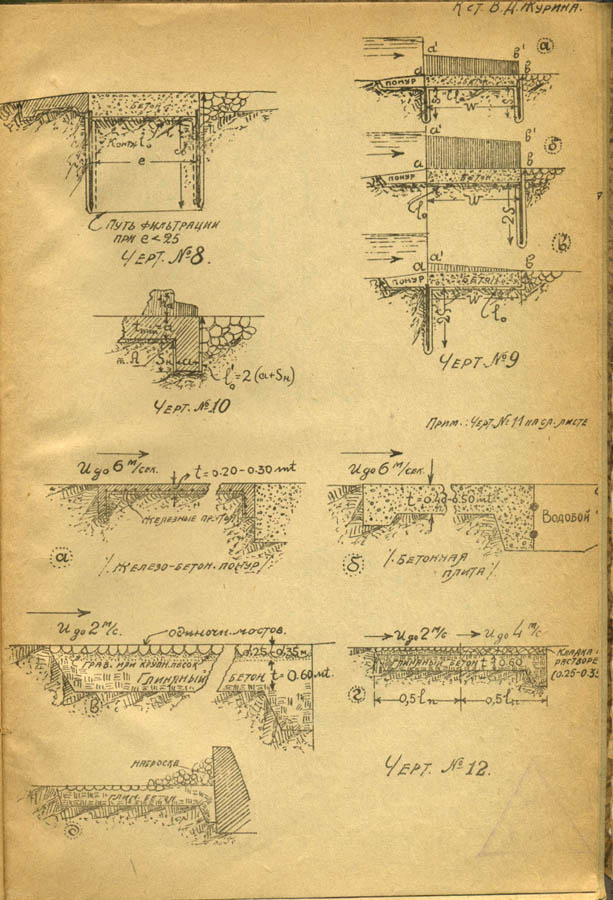 К ст. В. Д. Журина.
БЕТОН
Конт. l₀
e
S
ПУТЬ ФИЛЬТРАЦИИ
ПРИ e < 2S
ЧЕРТ. №8.
а
a' в'
в
ПОНУР БЕТОН
S l₀ S
W
б
a' в'
a в
ПОНУР БЕТОН
l₀ W
2S
в
a a' в
ПОНУР БЕТОН
W
2S l₀
ЧЕРТ. №9
a
т. А Sн
l'₀ = 2 (a+Sн)
ЧЕРТ. №10
ПРИМ.: ЧЕРТ. №11 НА СЛ. ЛИСТЕ
U до 6 м/сек.
t = 0.20 - 0.30 mt
ЖЕЛЕЗНЫЕ
а
/. ЖЕЛЕЗО-БЕТОН. ПОНУР /.
U до 6 м/сек.
t = 0.40-0.50 mt
ВОДОВОЙ
б
/. БЕТОННАЯ
ПЛИТА /.
U до 2 м/с. ОДИНОЧН. МОСТОВ.
0.25-0.35 м.
ГРАВ. ИЛИ КРУПН. ПЕСОК
ГЛИНЯНЫЙ БЕТОН t = 0.60 mt.
в
U до 2 м/с U до 4 м/с
КЛАДКА
РАСТВОРЕ
(0.25-0.35
ГЛИНЯНЫЙ БЕТОН t = 0.60
г
0,5 lп 0,5 lп
НАБРОСКА
ГЛИН. БЕТОН
ЧЕРТ. №12.